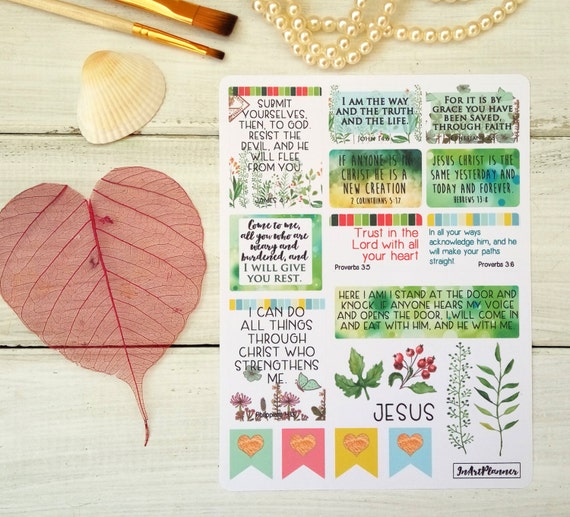 SUBMIT
YOURSELVES,
THEN, TO GOD.
RESIST THE
DEVIL, AND HE
WILL FLEE
FROM YOU.
JAMES 4:7
I AM THE WAY
AND THE TRUTH
AND THE LIFE.
JOHN 14:6
FOR IT IS BY
GRACE YOU HAVE
BEEN SAVED,
THROUGH FAITH
IF ANYONE IS IN
CHRIST HE IS A
NEW CREATION
2 CORINTHIANS 5:17
JESUS CHRIST IS THE
SAME YESTERDAY AND
TODAY AND FOREVER.
HEBREWS 13:8
Come to me,
all you who are
weary and
burdened, and
I WILL GIVE
YOU REST.
Trust in the
Lord with all
your heart
Proverbs 3:5
In all your ways
acknowledge him, and he
will make your paths
straight
Proverbs 3:6
HERE I AM I STAND AT THE DOOR AND
KNOCK. IF ANYONE HEARS MY VOICE
AND OPENS THE DOOR, I WILL COME IN
AND EAT WITH HIM, AND HE WITH ME.
I CAN DO
ALL THINGS
THROUGH
CHRIST WHO
STRENGTHENS
ME.
JESUS
InArtPlanner